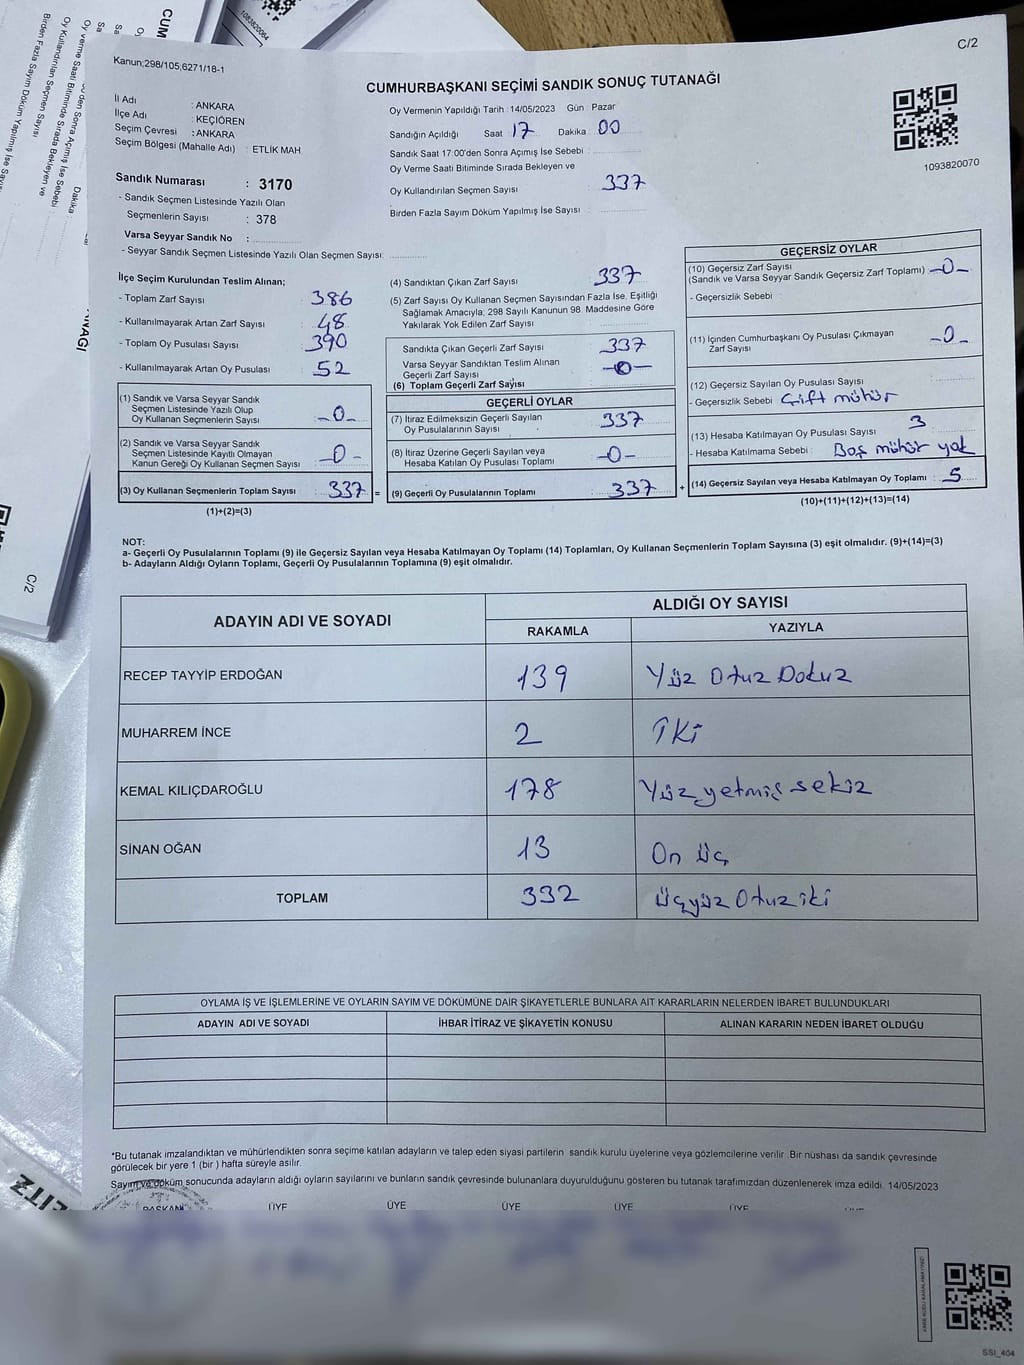 Kanun;298/105,6271/18-1
C/2
CUMHURBAŞKANI SEÇİMİ SANDIK SONUÇ TUTANAĞI
İl Adı : ANKARA
İlçe Adı : KEÇİÖREN
Seçim Çevresi : ANKARA
Seçim Bölgesi (Mahalle Adı) : ETLİK MAH.
Sandık Numarası : 3170
- Sandık Seçmen Listesinde Yazılı Olan
Seçmenlerin Sayısı : 378
Varsa Seyyar Sandık No :
- Seyyar Sandık Seçmen Listesinde Yazılı Olan Seçmen Sayısı:
Oy Vermenin Yapıldığı Tarih : 14/05/2023 Gün : Pazar
Sandığın Açıldığı Saat 17 Dakika 00
Sandık Saat 17:00'den Sonra Açımış İse Sebebi :
Oy Verme Saati Bitiminde Sırada Bekleyen ve
Oy Kullandırılan Seçmen Sayısı : 337
Birden Fazla Sayım Döküm Yapılmış İse Sayısı :
1093820070
İlçe Seçim Kurulundan Teslim Alınan;
- Toplam Zarf Sayısı : 386
- Kullanılmayarak Artan Zarf Sayısı : 48
- Toplam Oy Pusulası Sayısı : 390
- Kullanılmayarak Artan Oy Pusulası : 52
(1) Sandık ve Varsa Seyyar Sandık
Seçmen Listesinde Yazılı Olup
Oy Kullanan Seçmenlerin Sayısı : -0-
(2) Sandık ve Varsa Seyyar Sandık
Seçmen Listesinde Kayıtlı Olmayan
Kanun Gereği Oy Kullanan Seçmen Sayısı : -0-
(3) Oy Kullanan Seçmenlerin Toplam Sayısı : 337 =
(1)+(2)=(3)
(4) Sandıktan Çıkan Zarf Sayısı : 337
(5) Zarf Sayısı Oy Kullanan Seçmen Sayısından Fazla İse, Eşitliği
Sağlamak Amacıyla; 298 Sayılı Kanunun 98. Maddesine Göre
Yakılarak Yok Edilen Zarf Sayısı :
Sandıkta Çıkan Geçerli Zarf Sayısı : 337
Varsa Seyyar Sandıktan Teslim Alınan
Geçerli Zarf Sayısı : -0-
(6) Toplam Geçerli Zarf Sayısı :
GEÇERLİ OYLAR
(7) İtiraz Edilmeksizin Geçerli Sayılan
Oy Pusulalarının Sayısı : 337
(8) İtiraz Üzerine Geçerli Sayılan veya
Hesaba Katılan Oy Pusulası Toplamı : -0-
(9) Geçerli Oy Pusulalarının Toplamı : 337 +
GEÇERSİZ OYLAR
(10) Geçersiz Zarf Sayısı
(Sandık ve Varsa Seyyar Sandık Geçersiz Zarf Toplamı) : -0-
- Geçersizlik Sebebi :
(11) İçinden Cumhurbaşkanı Oy Pusulası Çıkmayan
Zarf Sayısı : -0-
(12) Geçersiz Sayılan Oy Pusulası Sayısı :
- Geçersizlik Sebebi : Çift mühür
(13) Hesaba Katılmayan Oy Pusulası Sayısı : 3
- Hesaba Katılmama Sebebi : Boş mühür yok
(14) Geçersiz Sayılan veya Hesaba Katılmayan Oy Toplamı : 5
(10)+(11)+(12)+(13)=(14)
NOT:
a- Geçerli Oy Pusulalarının Toplamı (9) ile Geçersiz Sayılan veya Hesaba Katılmayan Oy Toplamı (14) Toplamları, Oy Kullanan Seçmenlerin Toplam Sayısına (3) eşit olmalıdır. (9)+(14)=(3)
b- Adayların Aldığı Oyların Toplamı, Geçerli Oy Pusulalarının Toplamına (9) eşit olmalıdır.
ADAYIN ADI VE SOYADI ALDIĞI OY SAYISI
RAKAMLA YAZIYLA
RECEP TAYYİP ERDOĞAN 139 Yüz Otuz Dokuz
MUHARREM İNCE 2 İki
KEMAL KILIÇDAROĞLU 178 Yüz yetmiş sekiz
SİNAN OĞAN 13 On üç
TOPLAM 332 Üçyüz Otuz iki
OYLAMA İŞ VE İŞLEMLERİNE VE OYLARIN SAYIM VE DÖKÜMÜNE DAİR ŞİKAYETLERLE BUNLARA AİT KARARLARIN NELERDEN İBARET BULUNDUKLARI
ADAYIN ADI VE SOYADI İHBAR İTİRAZ VE ŞİKAYETİN KONUSU ALINAN KARARIN NEDEN İBARET OLDUĞU
*Bu tutanak imzalandıktan ve mühürlendikten sonra seçime katılan adayların ve talep eden siyasi partilerin sandık kurulu üyelerine veya gözlemcilerine verilir. Bir nüshası da sandık çevresinde
görülecek bir yere 1 (bir) hafta süreyle asılır.
Sayım ve döküm sonucunda adayların aldığı oyların sayılarını ve bunların sandık çevresinde bulunanlara duyurulduğunu gösteren bu tutanak tarafımızdan düzenlenerek imza edildi. 14/05/2023
BAŞKAN ÜYE ÜYE ÜYE ÜYE ÜYE
SSİ_404
1093820064
C/2